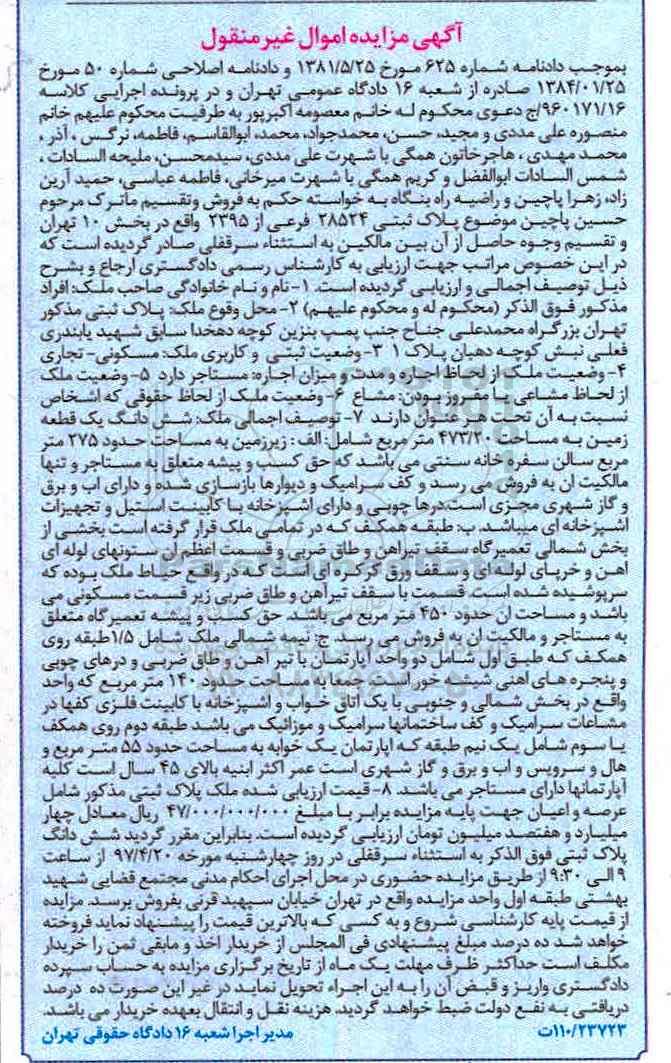 آگهی مزایده اموال غیر منقول
بموجب دادنامه شماره ۶۲۵ مورخ ۱۳۸۱/۵/۲۵ و دادنامه اصلاحی شماره ۵۰ مورخ
۱۳۸۴/۰۱/۲۵ صادره از شعبه ۱۶ دادگاه عمومی تهران و در پرونده اجرایی کلاسه
۹۶۰۱۷۱/۱۶/ج دعوی محکوم له خانم معصومه اکبرپور به طرفیت محکوم علیهم خانم
منصوره علی مددی و مجید، حسن، محمدجواد، محمد، ابوالقاسم، فاطمه، نرگس ، آذر ،
محمد مهدی ، هاجرخاتون همگی با شهرت علی مددی، سیدمحسن، ملیحه السادات ،
شمس السادات ابوالفضل و کریم همگی با شهرت میرخانی، فاطمه عباسی، حمید آرین
زاد، زهرا پاچین و راضیه راه بنگاه به خواسته حکم به فروش وتقسیم ماترک مرحوم
حسین پاچین موضوع پلاک ثبتی ۲۸۵۲۴ فرعی از ۲۳۹۵ واقع در بخش ۱۰ تهران
و تقسیم وجوه حاصل از آن بین مالکین به استثناء سرقفلی صادر گردیده است که
در این خصوص مراتب جهت ارزیابی به کارشناس رسمی دادگستری ارجاع و بشرح
ذیل توصیف اجمالی و ارزیابی گردیده است. ۱- نام و نام خانوادگی صاحب ملک: افراد
مذکور فوق الذکر (محکوم له و محکوم علیهم) ۲- محل وقوع ملک: پلاک ثبتی مذکور
تهران بزرگراه محمدعلی جناح جنب پمپ بنزین کوچه دهخدا سابق شهید یابندری
فعلی نبش کوچه دهبان پلاک ۱ ۳- وضعیت ثبتی و کاربری ملک: مسکونی- تجاری
۴- وضعیت ملک از لحاظ اجاره و مدت و میزان اجاره: مستاجر دارد ۵- وضعیت ملک
از لحاظ مشاعی یا مفروز بودن: مشاع ۶- وضعیت ملک از لحاظ حقوقی که اشخاص
نسبت به آن تحت هر عنوان دارند ۷- توصیف اجمالی ملک: شش دانگ یک قطعه
زمین به مساحت ۴۷۳/۲۰ متر مربع شامل: الف : زیرزمین به مساحت حدود ۲۷۵ متر
مربع سالن سفره خانه سنتی می باشد که حق کسب و پیشه متعلق به مستاجر و تنها
مالکیت ان به فروش می رسد و کف سرامیک و دیوارها بازسازی شده و دارای اب و برق
و گاز شهری مجزی است،درها چوبی و دارای اشپزخانه با کابینت استیل و تجهیزات
اشپزخانه ای میباشد. ب: طبقه همکف که در تمامی ملک قرار گرفته است بخشی از
بخش شمالی تعمیرگاه سقف تیراهن و طاق ضربی و قسمت اعظم ان ستونهای لوله ای
اهن و خرپای لوله ای و سقف ورق کرکره ای است که در واقع حیاط ملک بوده که
سرپوشیده شده است. قسمت با سقف تیرآهن و طاق ضربی زیر قسمت مسکونی می
باشد و مساحت ان حدود ۴۵۰ متر مربع می باشد. حق کسب و پیشه تعمیرگاه متعلق
به مستاجر و مالکیت ان به فروش می رسد. ج: نیمه شمالی ملک شامل ۱/۵طبقه روی
همکف که طبق اول شامل دو واحد اپارتمان با تیر آهن و طاق ضربی و درهای چوبی
و پنجره های اهنی شیشه خور است. جمعا به مساحت حدود ۱۴۰ متر مربع که واحد
واقع در بخش شمالی و جنوبی با یک اتاق خواب و اشپزخانه با کابینت فلزی کفها در
مشاعات سرامیک و کف ساختمانها سرامیک و موزائیک می باشد طبقه دوم روی همکف
یا سوم شامل یک نیم طبقه که اپارتمان یک خوابه به مساحت حدود ۵۵ متر مربع و
هال و سرویس و اب و برق و گاز شهری است عمر اکثر ابنیه بالای ۴۵ سال است کلیه
آپارتمانها دارای مستاجر می باشد. ۸- قیمت ارزیابی شده ملک پلاک ثبتی مذکور شامل
عرصه و اعیان جهت پایه مزایده برابر با مبلغ ۴۷/۰۰۰/۰۰۰/۰۰۰ ریال معادل چهار
میلیارد و هفتصد میلیون تومان ارزیابی گردیده است. بنابراین مقرر گردید شش دانگ
پلاک ثبتی فوق الذکر به استثناء سرقفلی در روز چهارشنبه مورخه ۹۷/۴/۲۰ از ساعت
۹ الی ۹:۳۰ از طریق مزایده حضوری در محل اجرای احکام مدنی مجتمع قضایی شهید
بهشتی طبقه اول واحد مزایده واقع در تهران خیابان سپهبد قرنی بفروش برسد. مزایده
از قیمت پایه کارشناسی شروع و به کسی که بالاترین قیمت را پیشنهاد نماید فروخته
خواهد شد ده درصد مبلغ پیشنهادی فی المجلس از خریدار اخذ و مابقی ثمن را خریدار
مکلف است حداکثر ظرف مهلت یک ماه از تاریخ برگزاری مزایده به حساب سپرده
دادگستری واریز و قبض آن را به این اجراء تحویل نماید در غیر این صورت ده درصد
دریافتی به نفع دولت ضبط خواهد گردید. هزینه نقل و انتقال بعهده خریدار می باشد.
۱۱۰/۲۳۷۲۳ت مدیر اجرا شعبه ۱۶ دادگاه حقوقی تهران